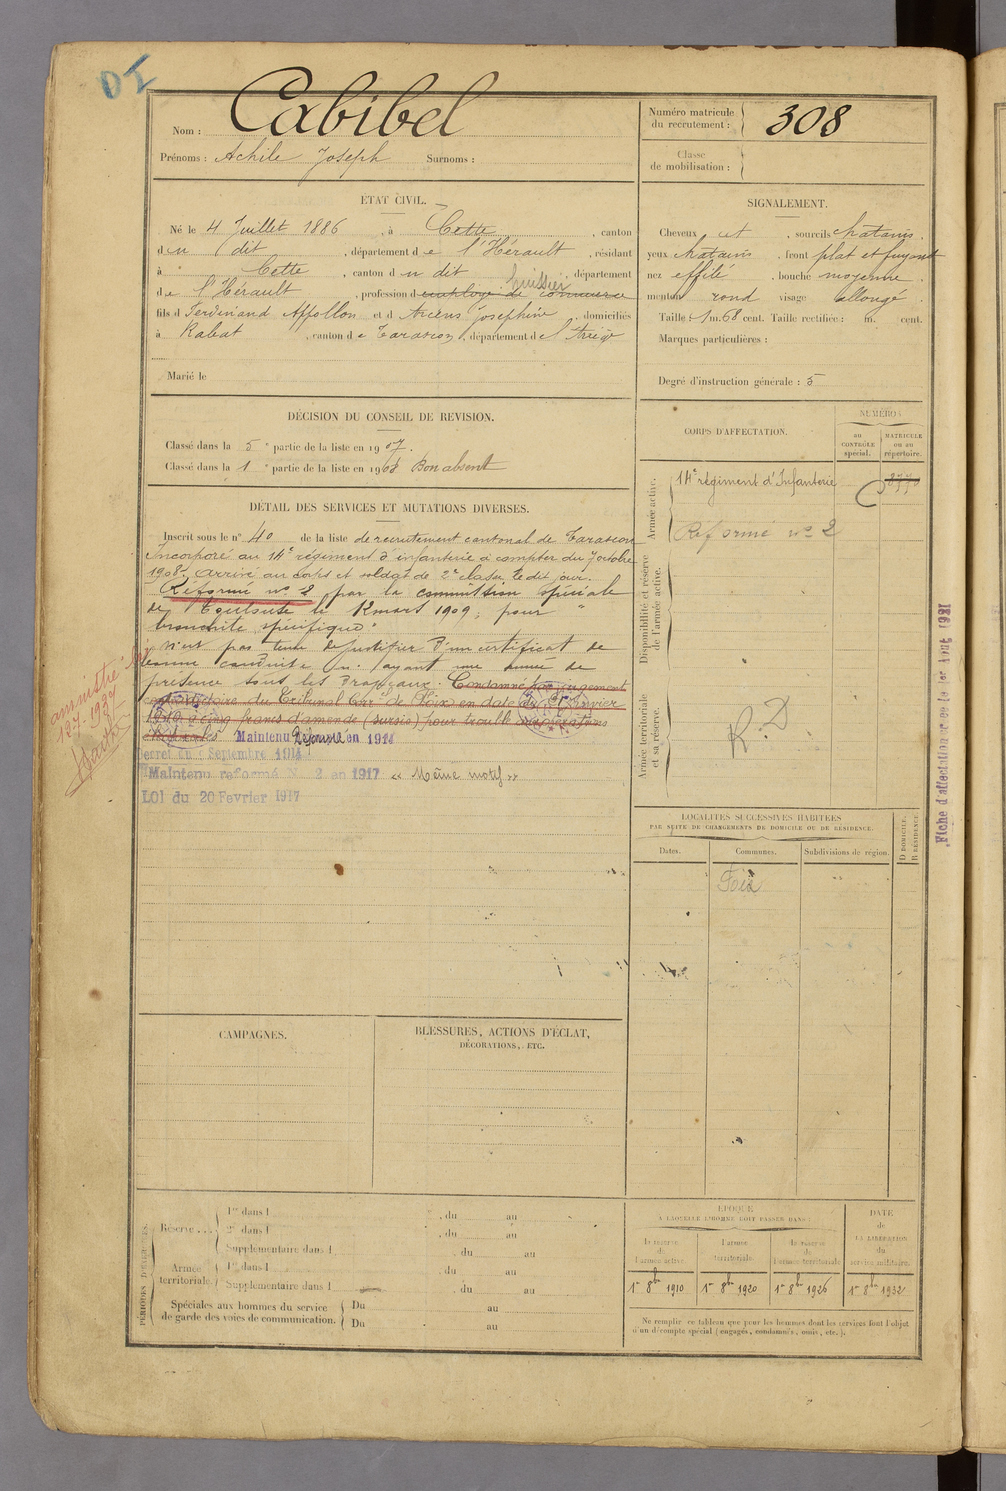 Nom : Cabibel
Prénoms : Achile Joseph Surnoms :
Numéro matricule du recrutement : 308
Classe de mobilisation :
ÉTAT CIVIL.
Né le 4 Juillet 1886, à Cette, canton
du dit, département de l'Hérault, résidant
à Cette, canton du dit, département
de l'Hérault, profession d employé de commerce huissier
fils d Ferdinand Appollon et d Arcens Josephine, domiciliés
à Rabat, canton de Tarascon, département de l'Ariège
Marié le
SIGNALEMENT.
Cheveux et, sourcils chatains.
yeux chatains, front plat et fuyant
nez effilé, bouche moyenne
menton rond visage allongé
Taille : 1 m. 68 cent. Taille rectifiée : m. cent.
Marques particulières :
Degré d'instruction générale : 5
DÉCISION DU CONSEIL DE REVISION.
Classé dans la 5 e partie de la liste en 1907.
Classé dans la 1 e partie de la liste en 1908 Bon absent
CORPS D'AFFECTATION.
NUMÉRO
au CONTRÔLE spécial.
MATRICULE ou au répertoire.
Armée active.
14e régiment d'Infanterie
Réformé no 2
Disponibilité et réserve de l'armée active.
Armée territoriale et sa réserve.
R.D
DÉTAIL DES SERVICES ET MUTATIONS DIVERSES.
Inscrit sous le n° 40 de la liste de recrutement cantonal de Tarascon
Incorporé au 14e régiment d'infanterie à compter du 7 octobre
1908. Arrivé au corps et soldat de 2e classe, le dit jour.
Réformé no 2 par la commission spéciale
de Toulouse le 12 mars 1909, pour "
bronchite spécifique"
n'est pas tenu de justifier d'un certificat de
bonne conduite n'ayant une année de
présence sous les Drapeaux. Condamné par jugement
contradictoire du Tribunal Corel de Foix en date du Janvier
à cinq francs d'amende (sursis) pour trouble
Maintenu Réformé en 1914
Decret du Septembre 1914
Maintenu reformé N° 2 en 1917 « Même motif »
LOI du 20 Fevrier 1917
amnistié
Fiche d'affectation
Août 1921
LOCALITÉS SUCCESSIVES HABITÉES
PAR SUITE DE CHANGEMENTS DE DOMICILE OU DE RÉSIDENCE.
Dates. Communes. Subdivisions de région.
D DOMICILE. R RÉSIDENCE.
Foix
CAMPAGNES.
BLESSURES, ACTIONS D'ÉCLAT,
DÉCORATIONS, ETC.
PÉRIODES D'EXERCICES.
Réserve....
1re dans l , du au
2e dans l , du au
Supplémentaire dans l , du au
Armée territoriale.
1re dans l , du au
Supplémentaire dans l , du au
Spéciales aux hommes du service
de garde des voies de communication.
Du au
Du au
ÉPOQUE
À LAQUELLE L'HOMME DOIT PASSER DANS :
la réserve de l'armée active.
l'armée territoriale.
la réserve de l'armée territoriale.
DATE de LA LIBÉRATION du service militaire.
1er 8bre 1910
1er 8bre 1920
1er 8bre 1926
1er 8bre 1932
Ne remplir ce tableau que pour les hommes dont les services font l'objet
d'un décompte spécial (engagés, condamnés, omis, etc.).